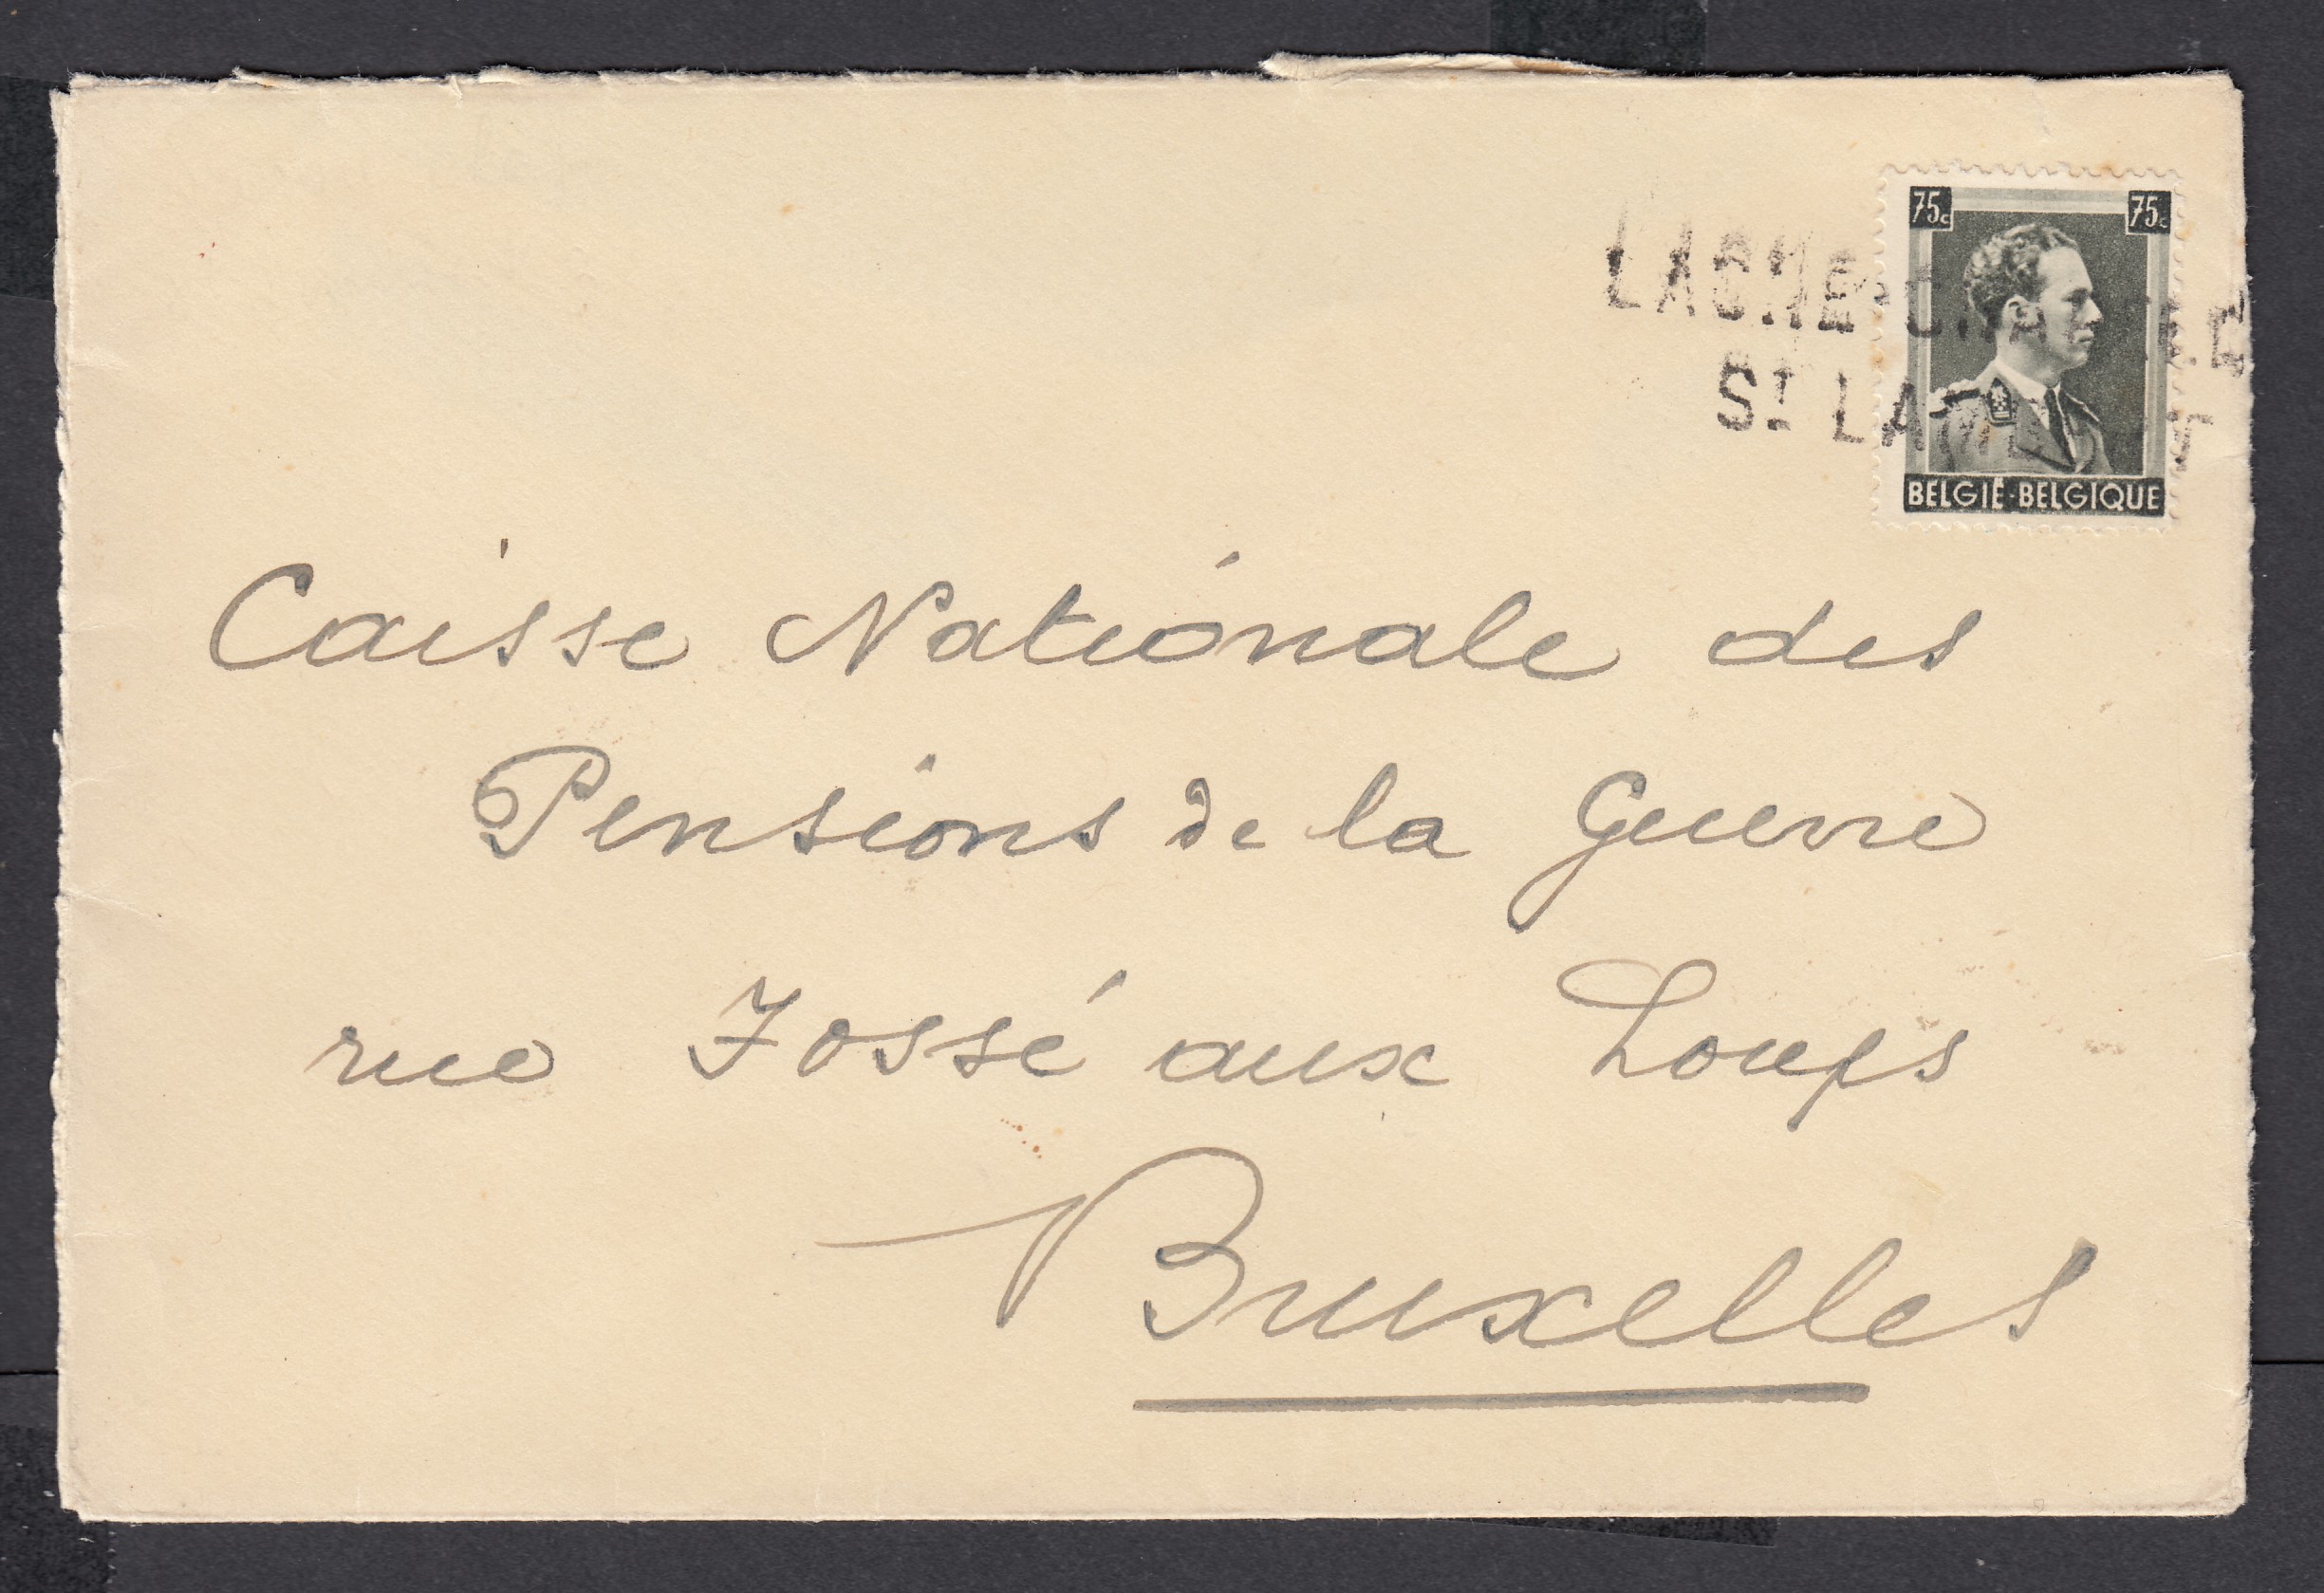 75c 75c
LASNE
ST
BELGIË-BELGIQUE
Caisse Nationale des
Pensions de la Guerre
rue Fossé aux Loups
Bruxelles